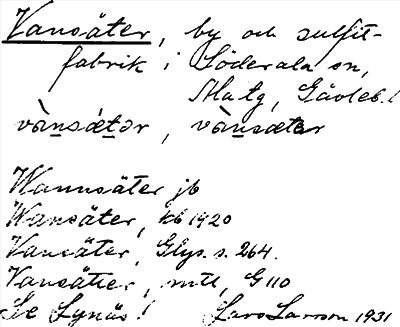 Vansäter, by och sulfit-
fabrik i Söderala sn,
Ala tg, Gävleb. l
vànsætər, vànsæter
Wannsäter jb
Wansäter, kb 1920
Vansäter, Glys. s. 264.
Vansäter, mtl, G 110
Se Lynäs! Lars Larsson 1931